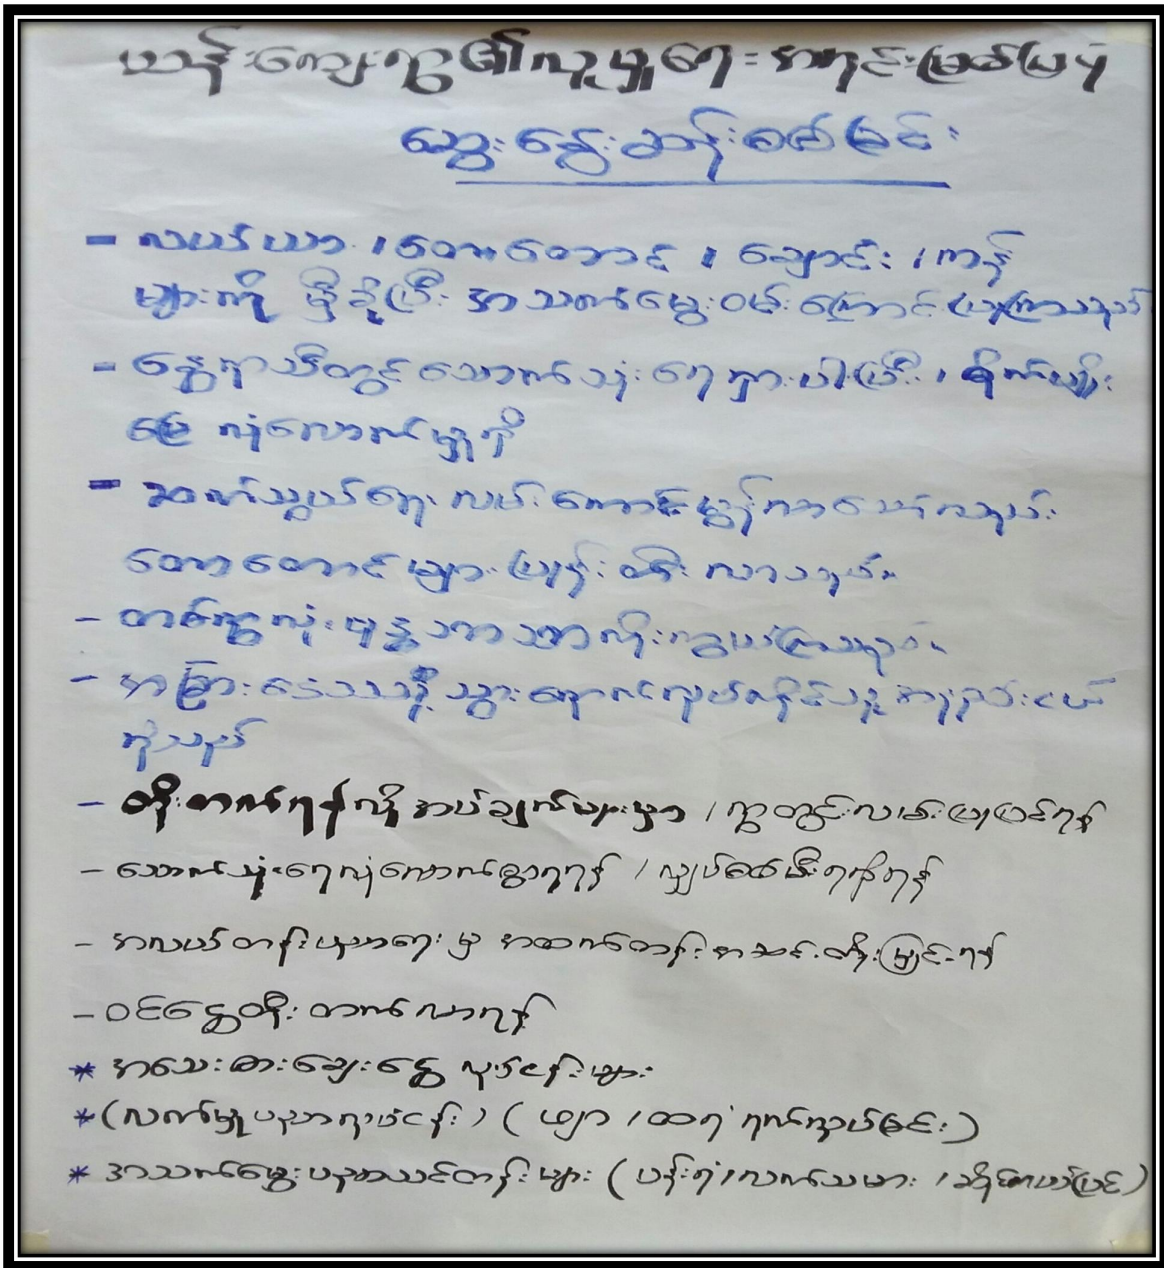 ကျေးရွာ၏လူမှုရေးအရင်းမြစ်ပြပုံ
ဆွေးနွေးဆန်းစစ်ခြင်း
- လယ်ယာ၊ တောတောင်၊ ချောင်း၊ ကန်
များကို မှီခိုပြီး အသက်မွေးဝမ်းကြောင်းပြုကြသည်
- နွေရာသီတွင် သောက်သုံးရေရှားပါးပြီး၊ စိုက်ပျိုး
မြေ လုံလောက်မှုရှိ
- ဆက်သွယ်ရေး လမ်းကောင်းမွန်
တောတောင်များ ပြုန်းတီးလာသည်။
- တစ်ရွာလုံး ဗုဒ္ဓဘာသာကိုးကွယ်ကြသည်။
- အခြားဒေသသို့ သွားရောက်လုပ်ကိုင်သူ အနည်းငယ်
ရှိသည်
- တိုးတက်ရန်လိုအပ်ချက်များမှာ၊ ရွာတွင်းလမ်းပြုပြင်ရန်
- သောက်သုံးရေလုံလောက်စွာရရန်၊ လျှပ်စစ်မီးရရှိရန်
- အလယ်တန်းပညာရေးမှ အထက်တန်းအဆင့်တိုးမြှင့်ရန်
- ဝင်ငွေတိုးတက်လာရန်
* အသေးစားချေးငွေလုပ်ငန်းများ
* (လက်မှုပညာလုပ်ငန်း) (ဖျာ၊ ထရံရက်လုပ်ခြင်း)
* အသက်မွေးပညာသင်တန်းများ (ပန်းရံ၊ လက်သမား၊ ဆိုင်ကယ်ပြင်)